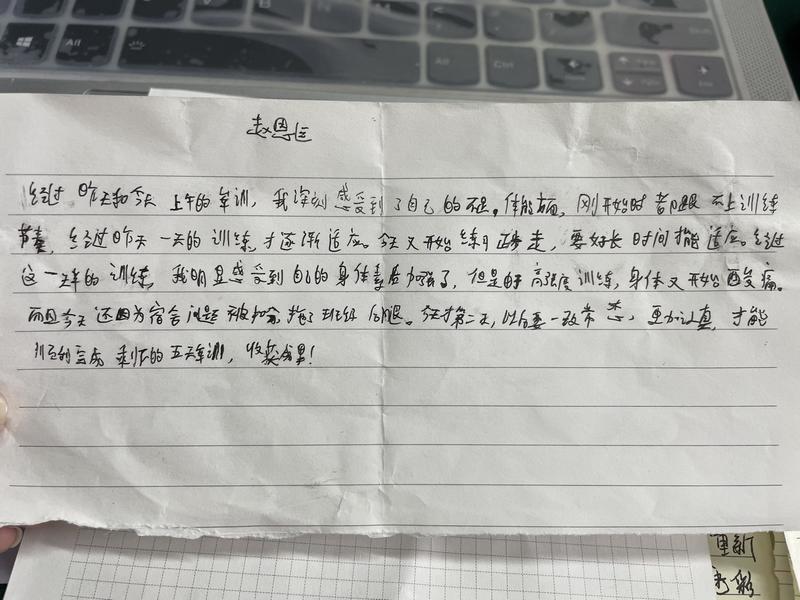 Alt
Alt
Ctrl
Shift
赵恩匡
经过昨天和今天上午的军训，我深刻感受到了自己的不足。体能方面，刚开始时着跟不上训练
节奏，经过昨天一天的训练，才逐渐适应。今天又开始练习正步走，要好长时间才能适应。经过
这一天半的训练，我明显感受到自己的身体素质加强了，但是由于高强度训练，身体又开始酸痛。
而且今天还因为宿舍问题被扣分，拖了班级后腿。今天才第二天，以后要一改常态，更加认真，才能
完成剩下的五天军训，收获成果！
更新